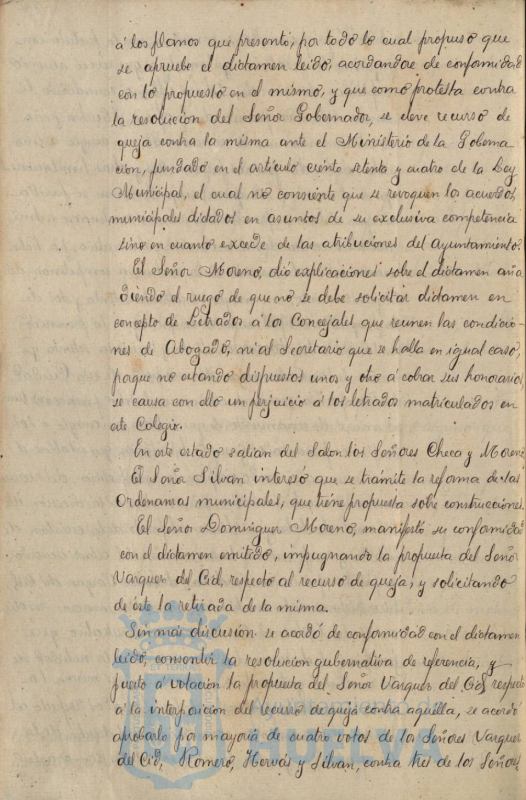 á los planos que presentó; por todo lo cual propuso que
se apruebe el dictamen leido, acordandose de conformidad
con lo propuesto en el mismo, y que como protesta contra
la resolución del Señor Gobernador, se eleve recurso de
queja contra la misma ante el Ministerio de la Goberna-
ción, fundado en el articulo ciento setenta y cuatro de la Ley
Municipal, el cual no consiente que se revoquen los acuerdos
municipales dictados en asuntos de su exclusiva competencia
sino en cuanto excede de las atribuciones del Ayuntamiento.
El Señor Moreno, dió explicaciones sobre el dictamen aña-
diendo el ruego de que no se debe solicitar dictamen en
concepto de Letrados á los Concejales que reunen las condicio-
nes de Abogado, ni al Secretario que se halla en igual caso,
porque no estando dispuestos unos y otro á cobrar sus honorarios,
se causa con ello un perjuicio á los letrados matriculados en
este Colegio.
En este estado salian del Salon los Señores Checa y Moreno.
El Señor Silvan interesó que se trámite la reforma de las
Ordenanzas municipales, que tiene propuesta sobre construcciones.
El Señor Dominguez Moreno, manifestó su conformidad
con el dictamen emitido, impugnando la propuesta del Señor
Vazquez del Cid, respecto al recurso de queja, y solicitando
de éste la retirada de la misma.
Sin más discusión se acordó de conformidad con el dictamen
leido, consentir la resolución gubernativa de referencia, y
puesto á votación la propuesta del Señor Vazquez del Cid respecto
á la interposición del recurso de queja contra aquélla, se acordó
aprobarlo por mayoría de cuatro votos de los Señores Vazquez
del Cid, Romero, Hervás y Silvan, contra tres de los Señores
HUELVA